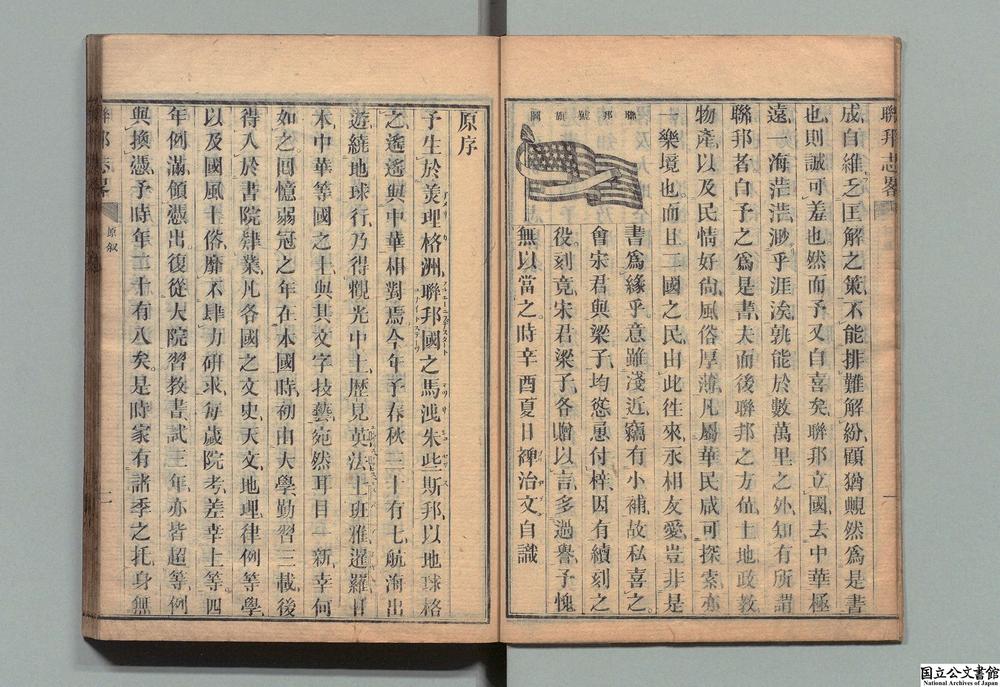 聯邦志畧
成自維乏匡解之策不能排難解紛顧猶覥然爲是書
也則誠可羞也然而予又自喜矣聯邦立國去中華極
遠一海浩浩渺乎涯涘孰能於數萬里之外知有所謂
聯邦者自予之爲是書夫而後聯邦之方位土地政敎
物產以及民情好尙風俗厚薄凡屬華民咸可探索亦
一樂境也而且二國之民由此徃來永相友愛豈非是
聯邦號旗圖
書爲緣乎意雖淺近竊有小補故私喜之
會宋君與梁子均慫恿付梓因有續刻之
役刻竟宋君梁子各贈以言多過譽予愧
無以當之時辛酉夏日裨治文自識
一
原序
予生於美理格洲聯邦國之馬洩朱些斯邦以地球格
之遙遙與中華相對焉今年予春秋三十有七航海出
遊繞地球行乃得觀光中土歷見英法土班雅暹羅日
本中華等國之士與其文字技藝宛然耳目一新幸何
如之囘憶弱冠之年在本國時初由大學勤習三載後
得入於書院肄業凡各國之文史天文地理律例等學
以及國風土俗靡不肆力硏求每歲院考差幸上等四
年例滿領憑出復從大院習敎書試三年亦皆超等例
與換憑予時年二十有八矣是時家有諸季之托身無
聯邦志畧
原叙
二
国立公文書館
National Archives of Japan